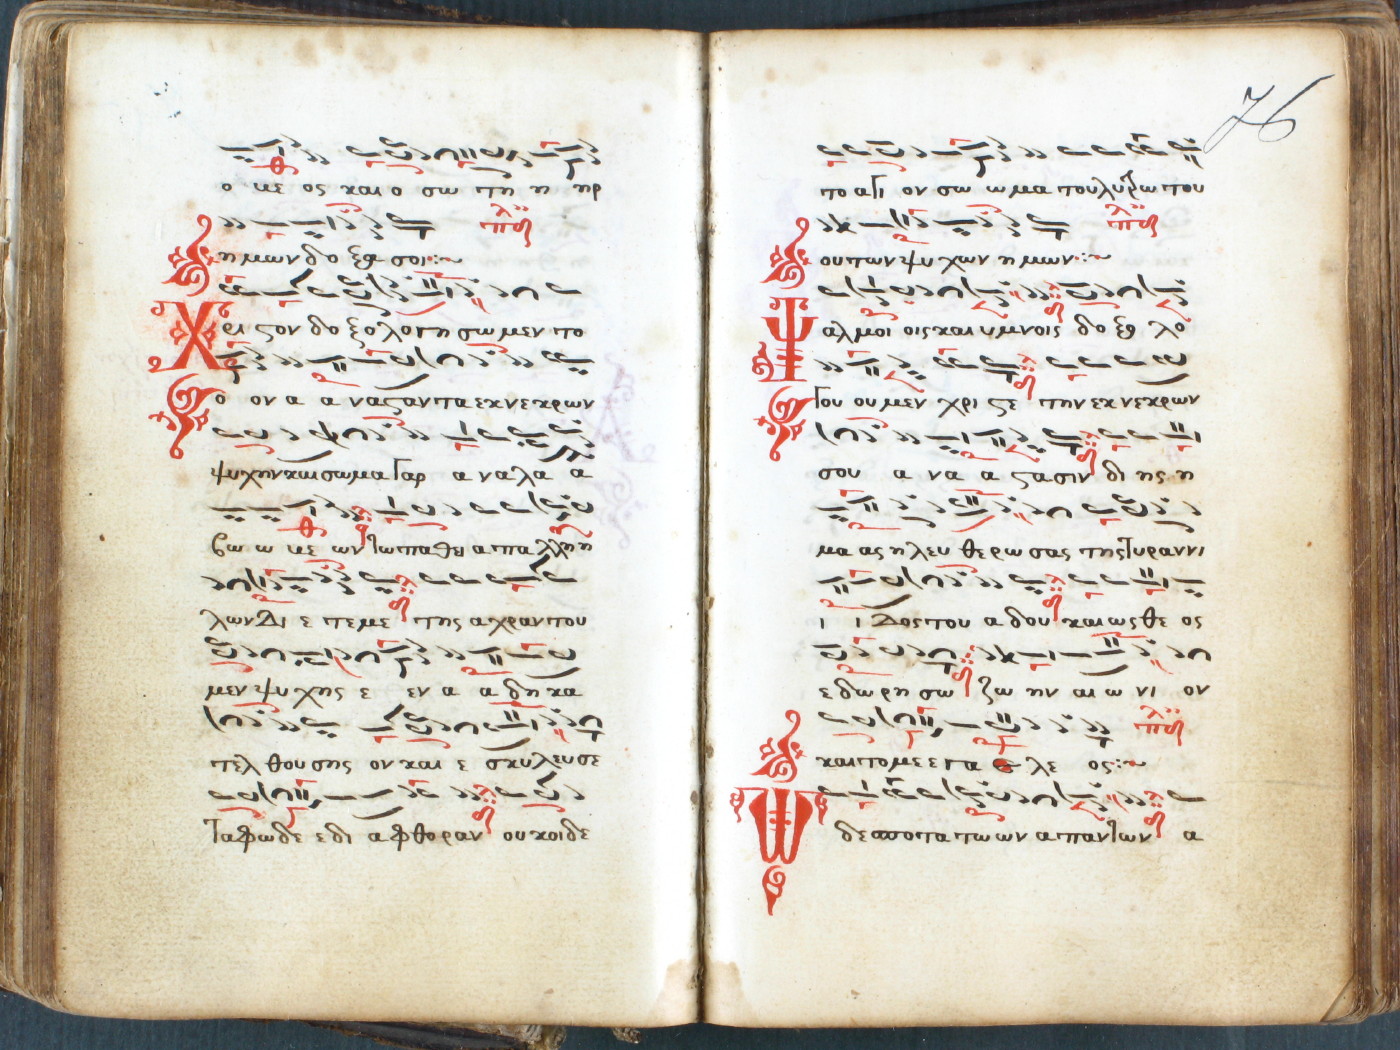 ο με ος και ο σω τη η ηρ
ημων δο ξα σοι
Χρι ςον δο ξο λο γη σω μεν το
ο ον α α να ςαν τα εκ νε κρων
ψυχην και σωμα γαρ α να λα α
βω ω με ων τω παθει απ αλλη η
λων δι ε τε με της αχραντου
μεν ψυ χης ε εν α α δη κα
τελ θουσης ον και ε σκυλευσε
ταφω δε ε δι α φθοραν ουκ οι δε
76
το αγι ον σω ω μα του λυτρωτου
ου των ψυ χων η μων
Ψαλμοι οις και υμνοις δο ξα λο
γου ου μεν χρι ςε την εκ νε κρων
σου α να α ςασιν δι ης η
μα ας η λευ θε ρω σας της τυραννι
ι ι δος του α δου και ως θε ος
ε δωρη σω ζω ην αι ω νι ον
και το με ε γα λε ος
Ω δεσποτα τω ων απαντων α